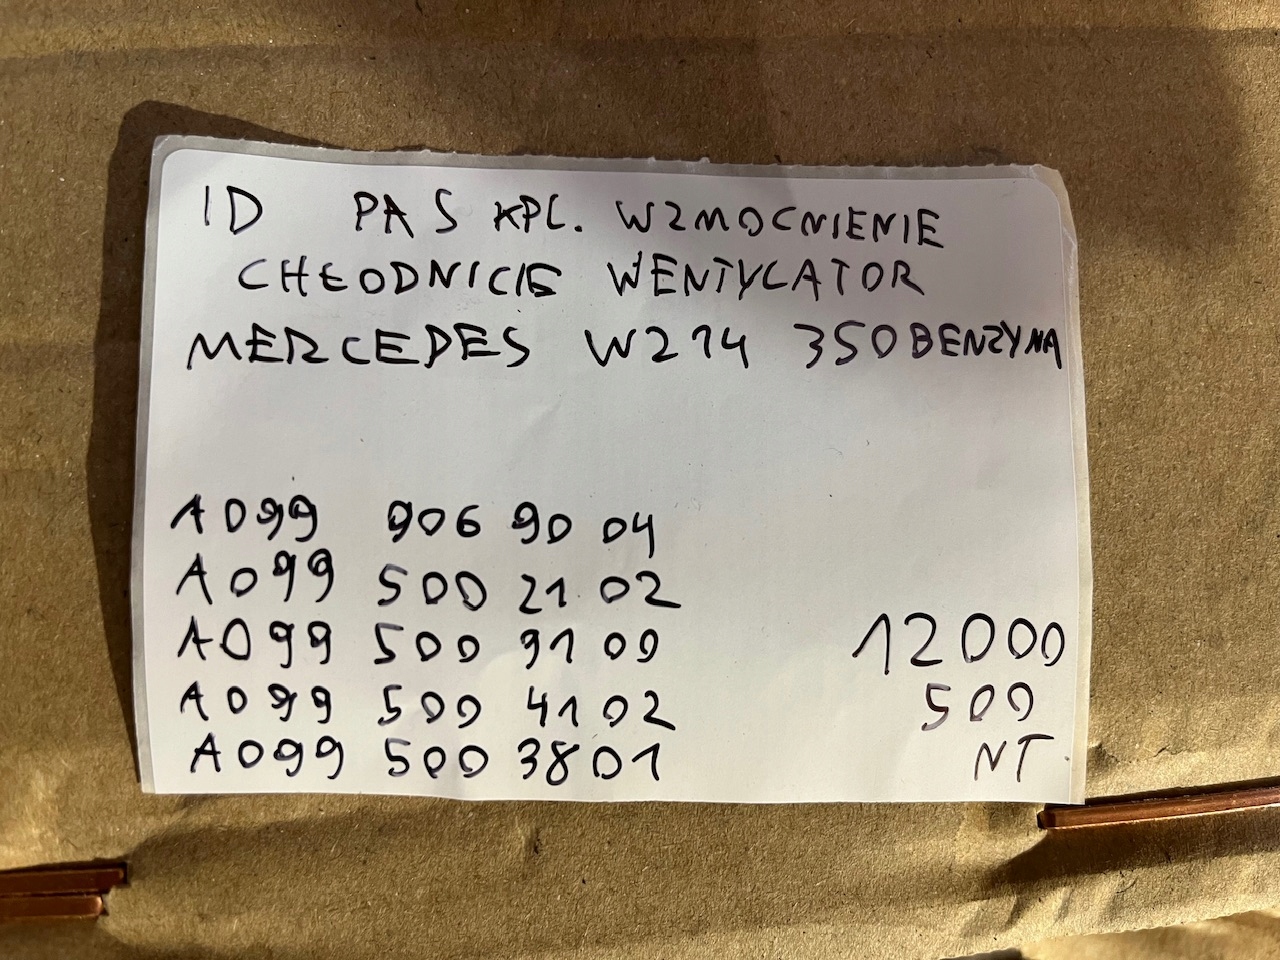 ID PAS KPL. WZMOCNIENIE
CHŁODNICE WENTYLATOR
MERCEDES W214 350 BENZYNA
A099 906 90 04
A099 500 21 02
A099 500 91 00
A099 500 41 02
A099 500 38 01
12000
500
NT